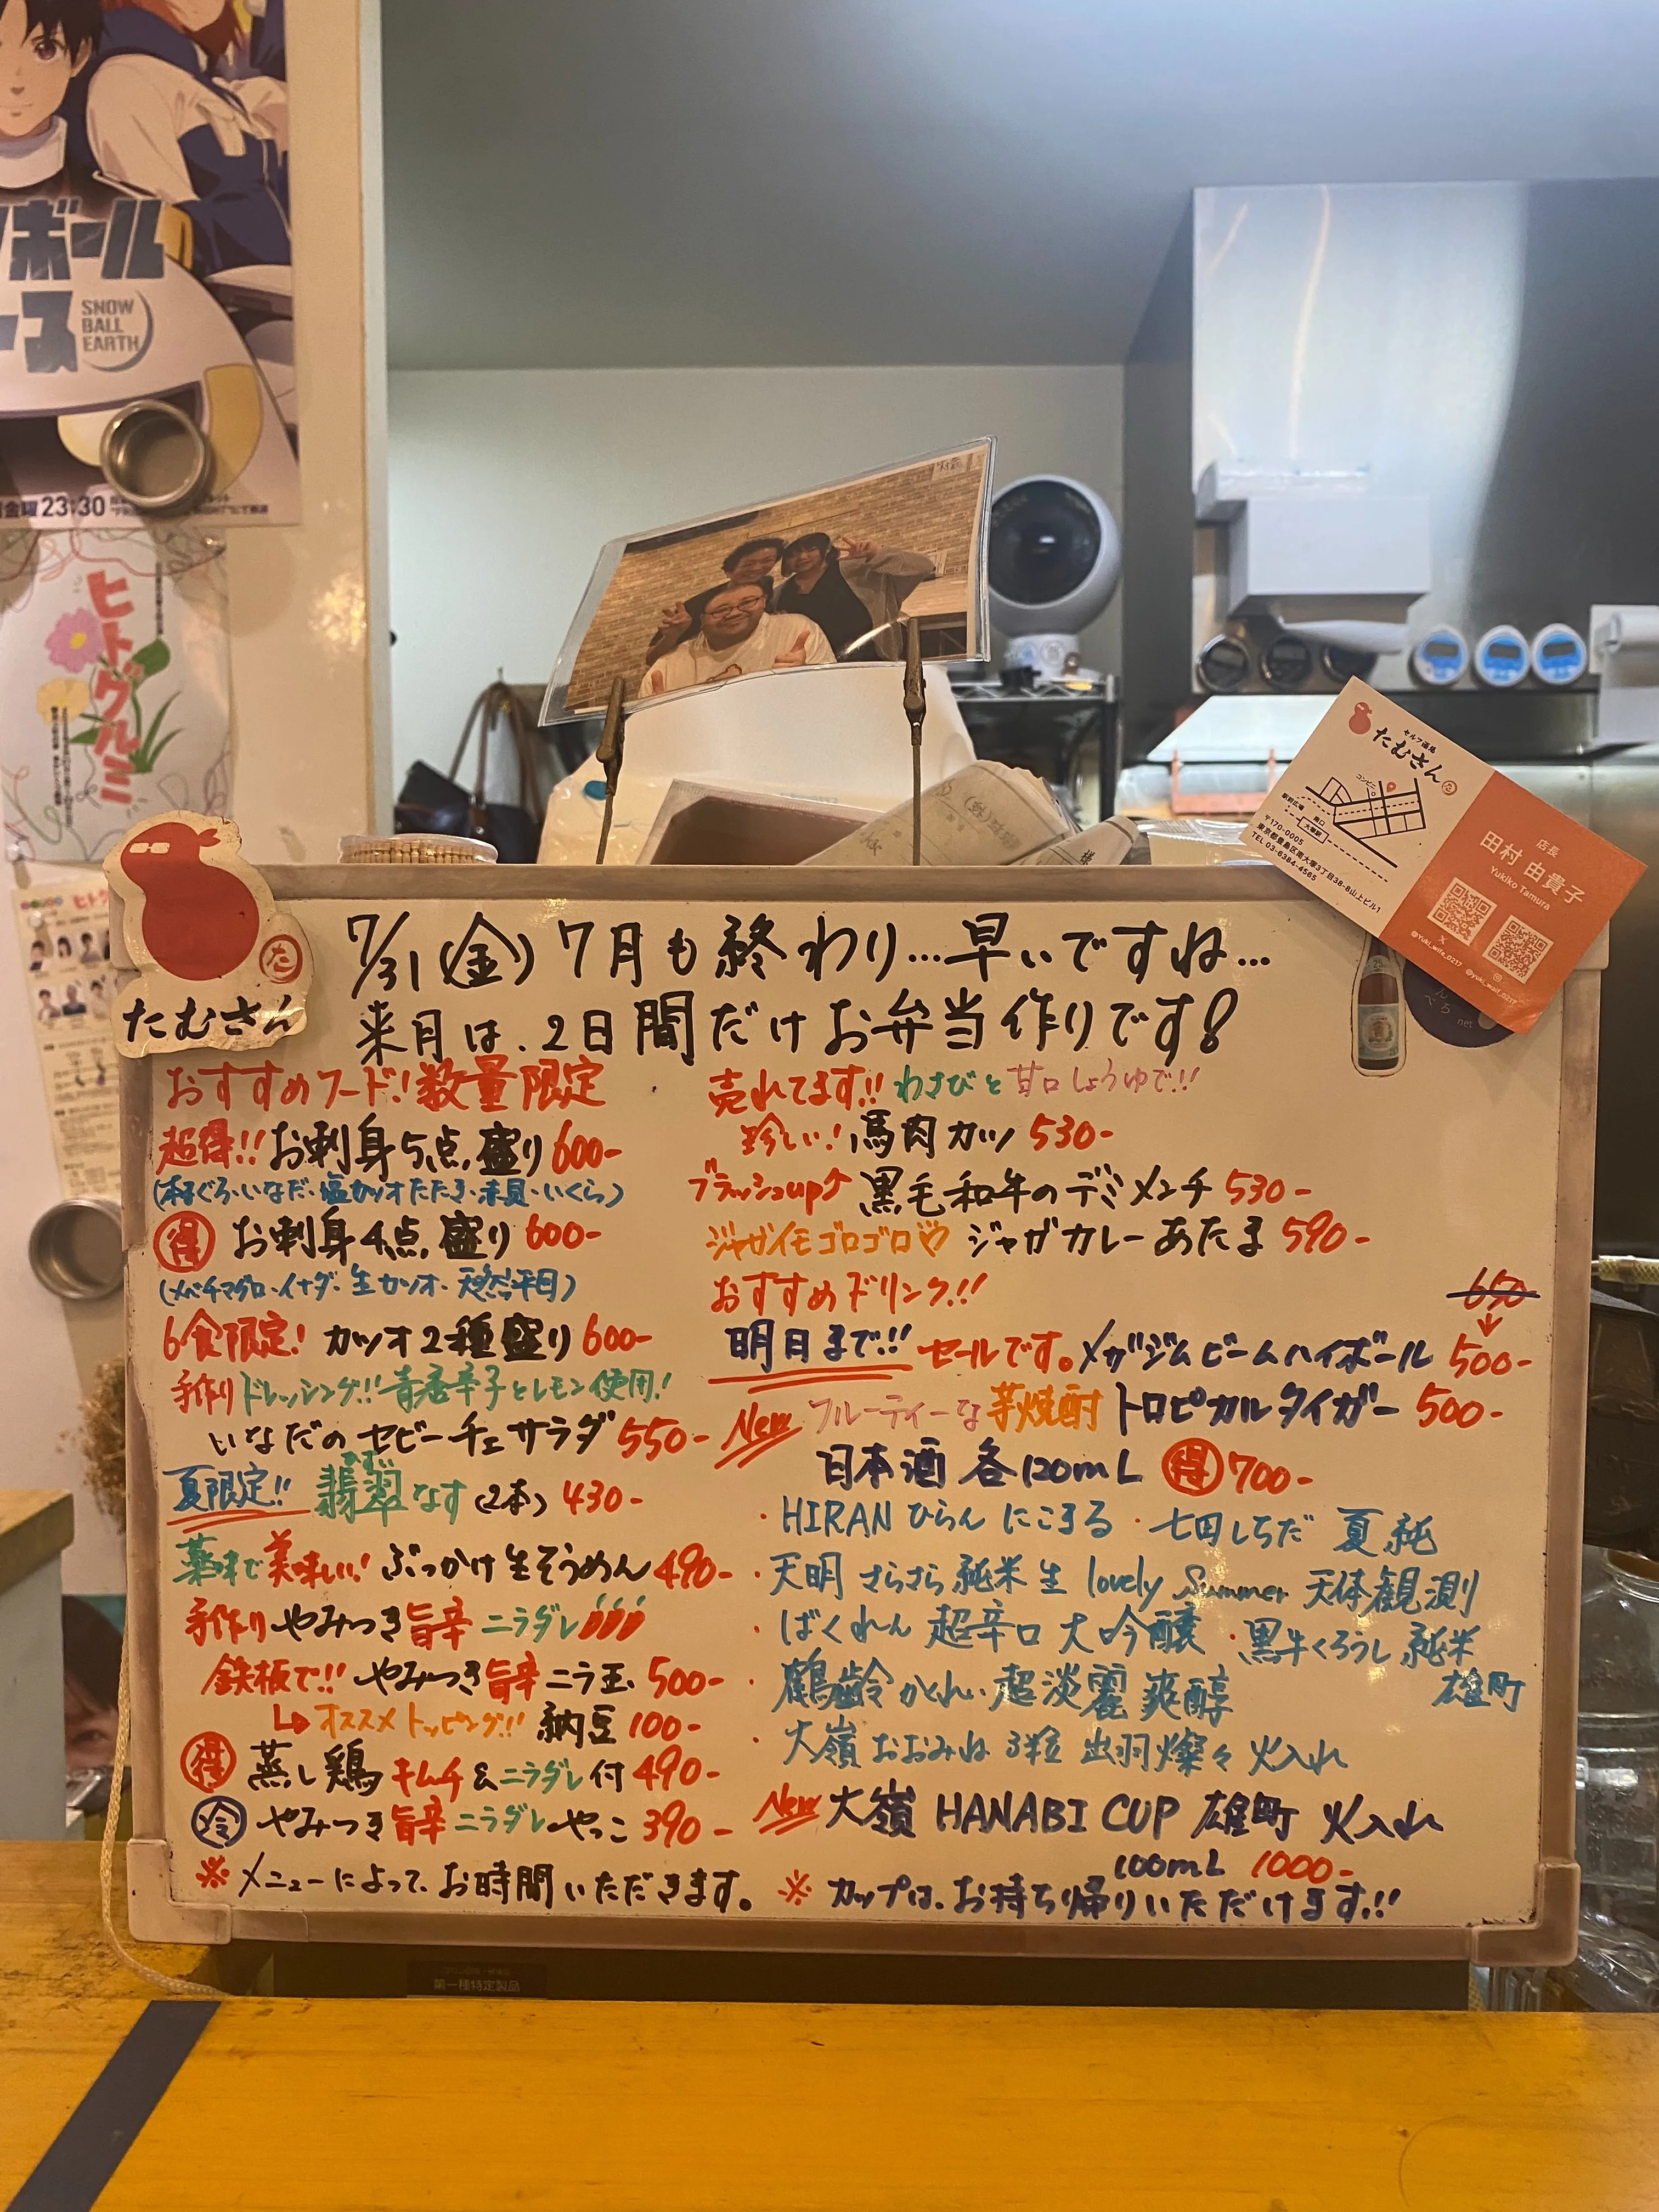 ボール
ース
SNOW
BALL
EARTH
金曜 23:30
ヒトグルミ
セルフ酒場
たむさん
コンビニ
駅前広場
南口
大塚駅
〒170-0005
東京都豊島区南大塚3丁目38-8山上ビル1
TEL 03-6384-4565
店長
田村 由貴子
Yukiko Tamura
@Yuki_wife_0217
@yuki_waif_0217
べろ
net
た
たむさん
7/31(金) 7月も終わり…早いですね…
来月は、2日間だけお弁当作りです!
おすすめフード!数量限定
超得!! お刺身5点盛り 600-
(本まぐろ・いなだ・塩カツオたたき・赤貝・いくら)
得 お刺身4点盛り 600-
(メバチマグロ・イナダ・生カツオ・天然平目)
6食限定! カツオ2種盛り 600-
手作りドレッシング!! 青唐辛子とレモン使用!
いなだのセビーチェサラダ 550-
ひすい
夏限定!! 翡翠なす(2本) 430-
薬味で美味しい! ぶっかけ生そうめん 490-
手作りやみつき旨辛ニラダレ
鉄板で!! やみつき旨辛ニラ玉 500-
オススメトッピング!! 納豆 100-
得 蒸し鶏 キムチ&ニラダレ付 490-
冷 やみつき旨辛ニラダレやっこ 390-
※メニューによって、お時間いただきます。
売れてます!! わさびと甘口しょうゆで!!
珍しい! 馬肉カツ 530-
ブラッシュup 黒毛和牛のデミメンチ 530-
ジャガイモゴロゴロ♡ ジャガカレーあたま 590-
おすすめドリンク!!
650
明日まで!! セールです。メガジムビームハイボール 500-
New フルーティーな芋焼酎 トロピカルタイガー 500-
日本酒 各120mL 得 700-
・HIRAN ひらん にこまる ・七田しちだ 夏純
・天明 さらさら純米生 lovely Summer 天体観測
・ばくれん 超辛口 大吟醸 ・黒牛くろうし 純米
雄町
・鶴齢かくれい 超淡麗 爽醇
・大嶺おおみね 3粒 出羽燦々 火入れ
New 大嶺 HANABI CUP 雄町 火入れ
100mL 1000-
※カップは、お持ち帰りいただけます!!
第一種特定製品